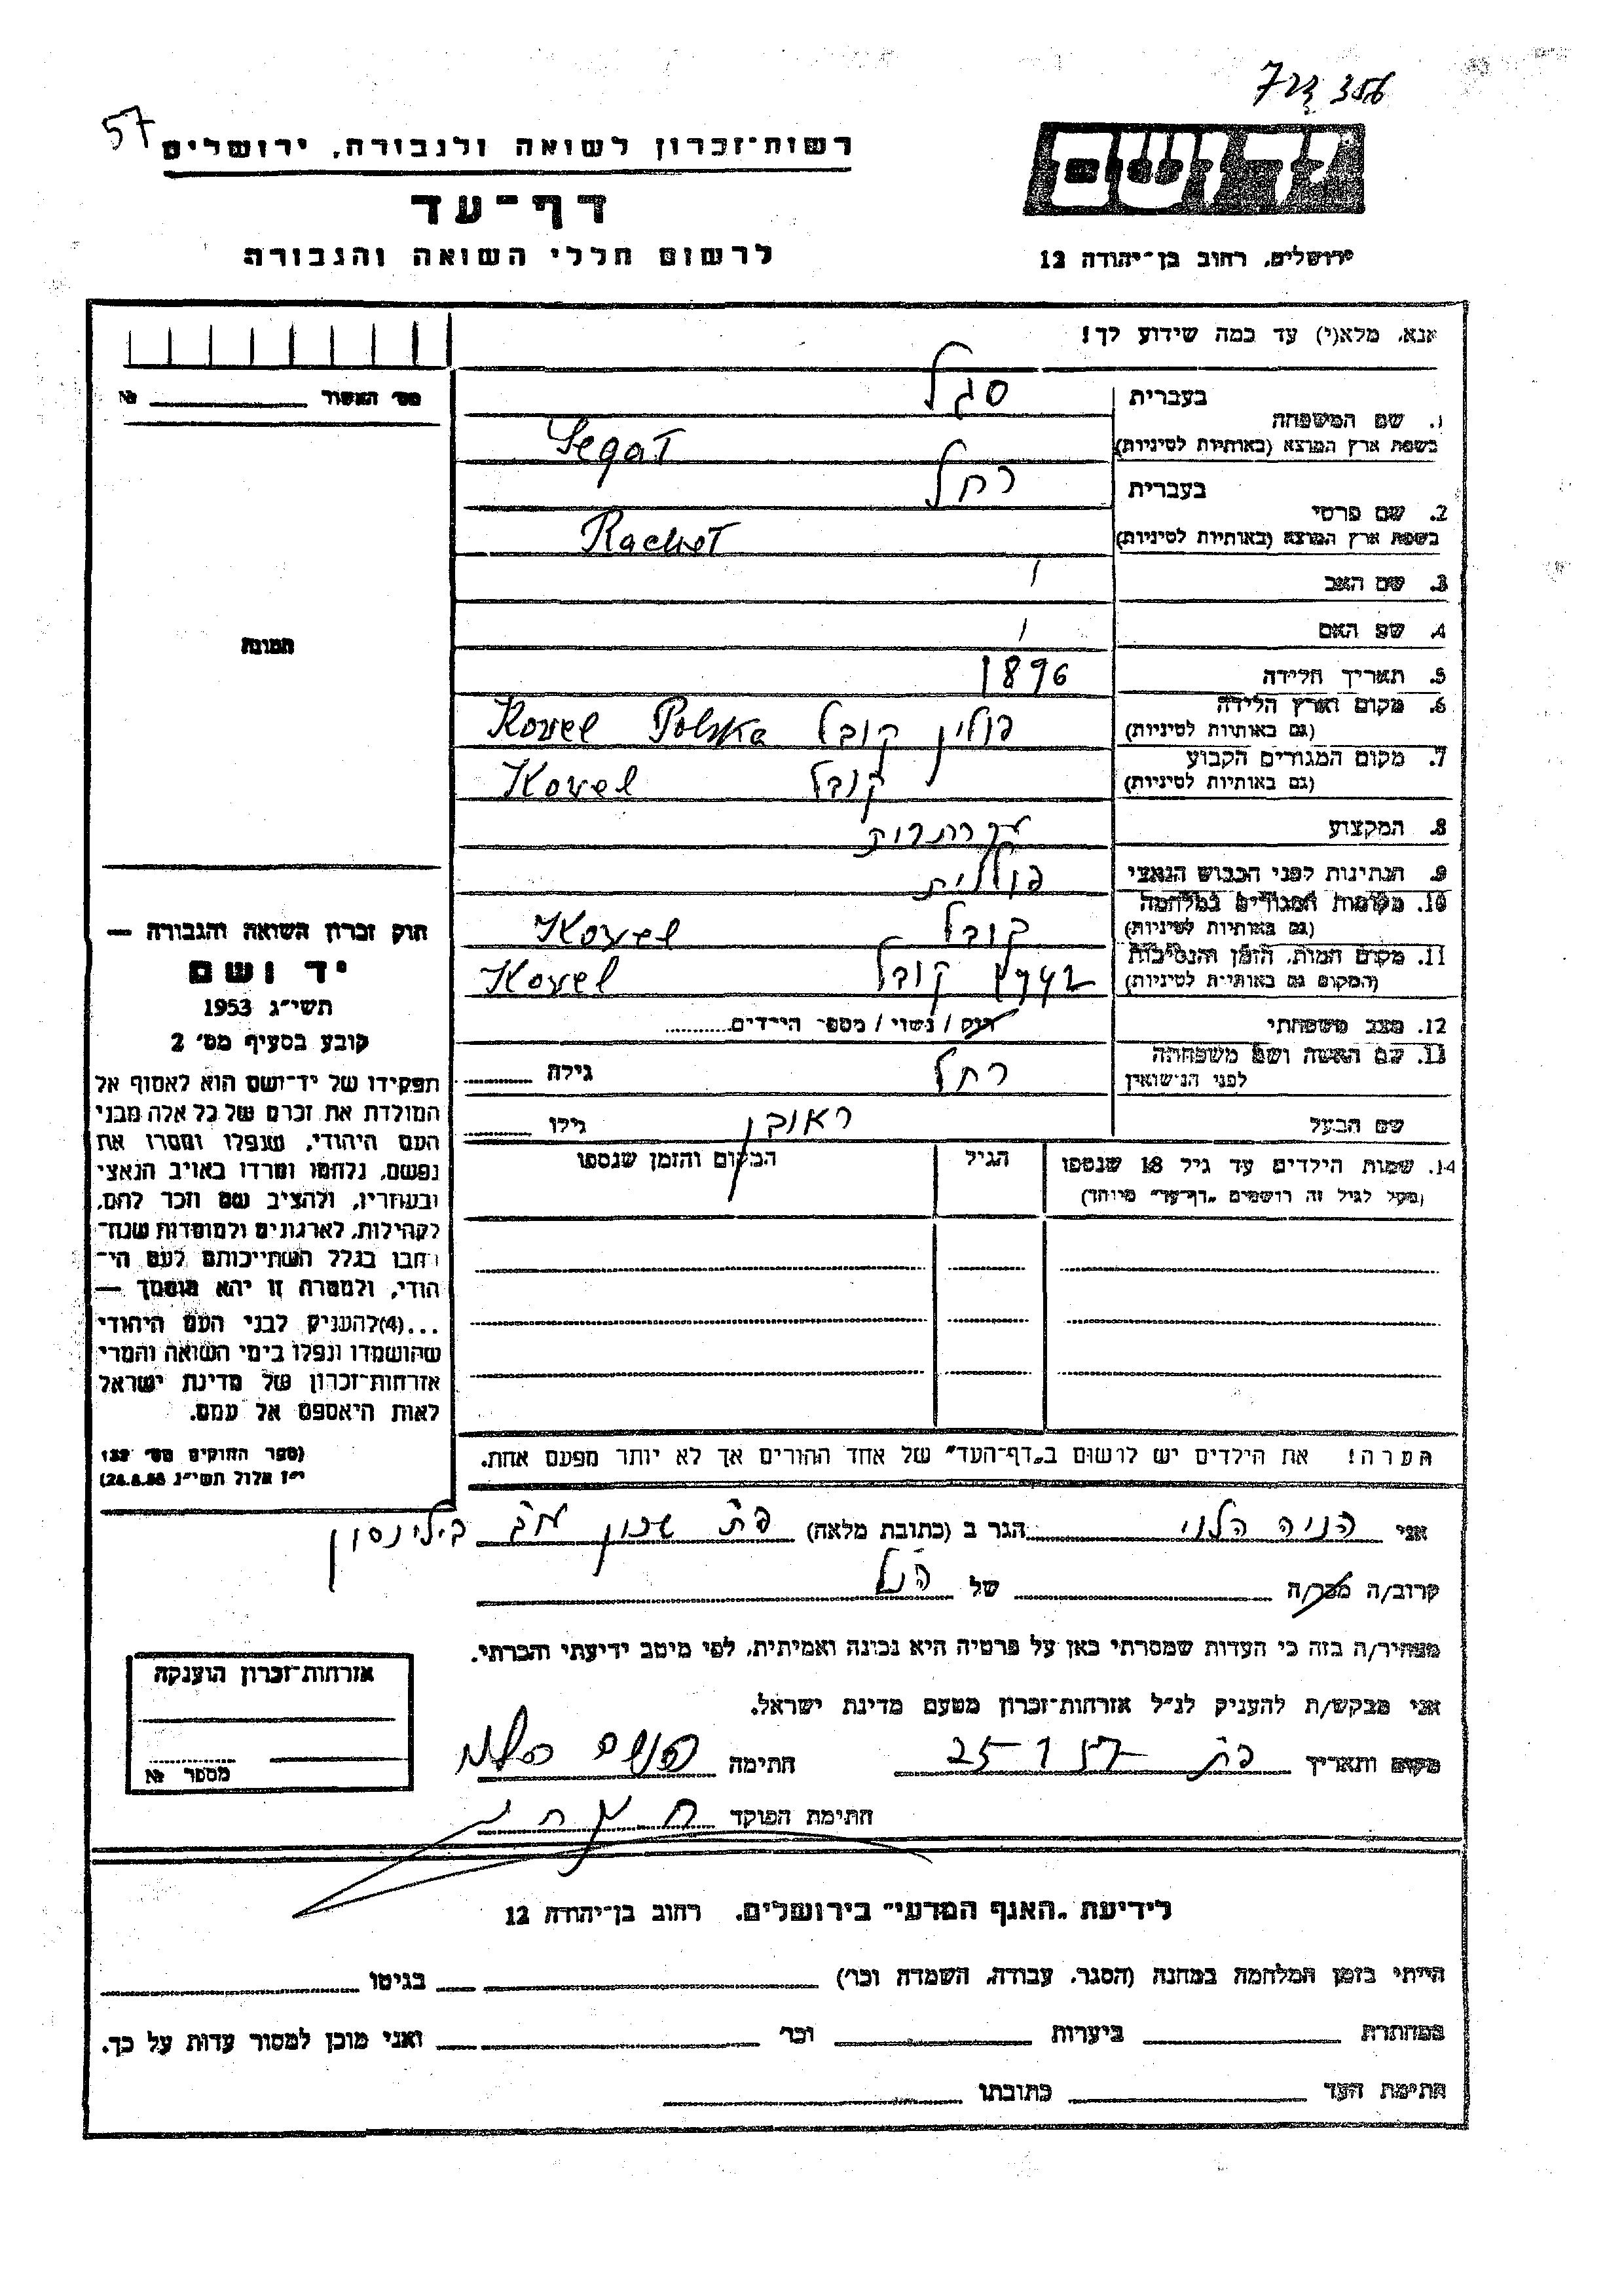 356 ד27
57
רשות־זכרון לשואה ולגבורה, ירושלים
דף־עד
לרשום חללי השואה והגבורה
יד ושם
ירושלים, רחוב בן־יהודה 12
אנא, מלא(י) עד כמה שידוע לך!
מס׳ האשור №
1. שם המשפחה
בעברית סגל
בשפת ארץ המוצא (באותיות לטיניות) Segal
2. שם פרטי
בעברית רחל
בשפת ארץ המוצא (באותיות לטיניות) Rachel
3. שם האב
4. שם האם
5. תאריך הלידה 1896
6. מקום וארץ הלידה
(גם באותיות לטיניות) פולין קובל Kovel Polska
7. מקום המגורים הקבוע
(גם באותיות לטיניות) קובל Kovel
8. המקצוע עקרת בית
9. הנתינות לפני הכבוש הנאצי פולנית
10. מקומות המגורים במלחמה
(גם באותיות לטיניות) קובל Kovel
11. מקום המות, הזמן והנסיבות
(המקום גם באותיות לטיניות) 1942 קובל Kovel
12. מצב משפחתי רוק / נשוי / מספר הילדים
13. שם האשה ושם משפחתה
לפני הנישואין רחל גילה
שם הבעל ראובן גילו
14. שמות הילדים עד גיל 18 שנספו
(מעל לגיל זה רושמים „דף־עד” מיוחד)
הגיל
המקום והזמן שנספו
תמונה
חוק זכרון השואה והגבורה —
יד ושם
תשי״ג 1953
קובע בסעיף מס׳ 2
תפקידו של יד־ושם הוא לאסוף אל
המולדת את זכרם של כל אלה מבני
העם היהודי, שנפלו ומסרו את
נפשם, נלחמו ומרדו באויב הנאצי
ובעוזריו, ולהציב שם וזכר להם,
לקהילות, לארגונים ולמוסדות שנח־
רבו בגלל השתייכותם לעם הי־
הודי, ולמטרה זו יהא מוסמך —
...(4)להעניק לבני העם היהודי
שהושמדו ונפלו בימי השואה והמרי
אזרחות־זכרון של מדינת ישראל
לאות היאספם אל עמם.
(ספר החוקים מס׳ 132
י״ז אלול תשי״ג 28.8.53)
הערה! את הילדים יש לרשום ב„דף־העד” של אחד ההורים אך לא יותר מפעם אחת.
אני הניה הלוי הגר ב (כתובת מלאה) פ״ת שכון מב בילינסון
קרוב/ה מכר/ה של הנ״ל
מצהיר/ה בזה כי העדות שמסרתי כאן על פרטיה היא נכונה ואמיתית, לפי מיטב ידיעתי והכרתי.
אני מבקש/ת להעניק לנ״ל אזרחות־זכרון מטעם מדינת ישראל.
מקום ותאריך פ״ת 25-1 57 חתימה
חתימת הפוקד
אזרחות־זכרון הוענקה
מספר №
לידיעת „האגף המדעי” בירושלים, רחוב בן־יהודה 12
הייתי בזמן המלחמה במחנה (הסגר, עבודה, השמדה וכו׳) בגיטו
במחתרת ביערות וכו׳ ואני מוכן למסור עדות על כך.
חתימת העד כתובתו